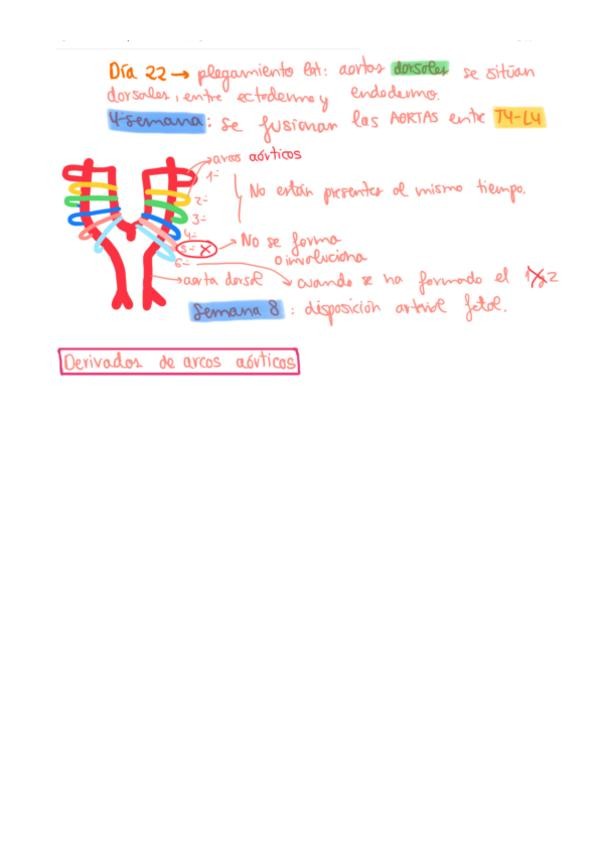 Día 22 → plegamiento lat: aortas dorsales se sitúan
dorsales, entre ectodermo y endodermo.
4ªsemana: se fusionan las AORTAS entre T4-L4
arcos aórticos
1=
No están presentes al mismo tiempo.
2=
3=
4=
5= X → No se forma
o involuciona
6=
aorta dorsal
cuando se ha formado el 1 y 2
Semana 8: disposición arterial fetal.
Derivados de arcos aórticos